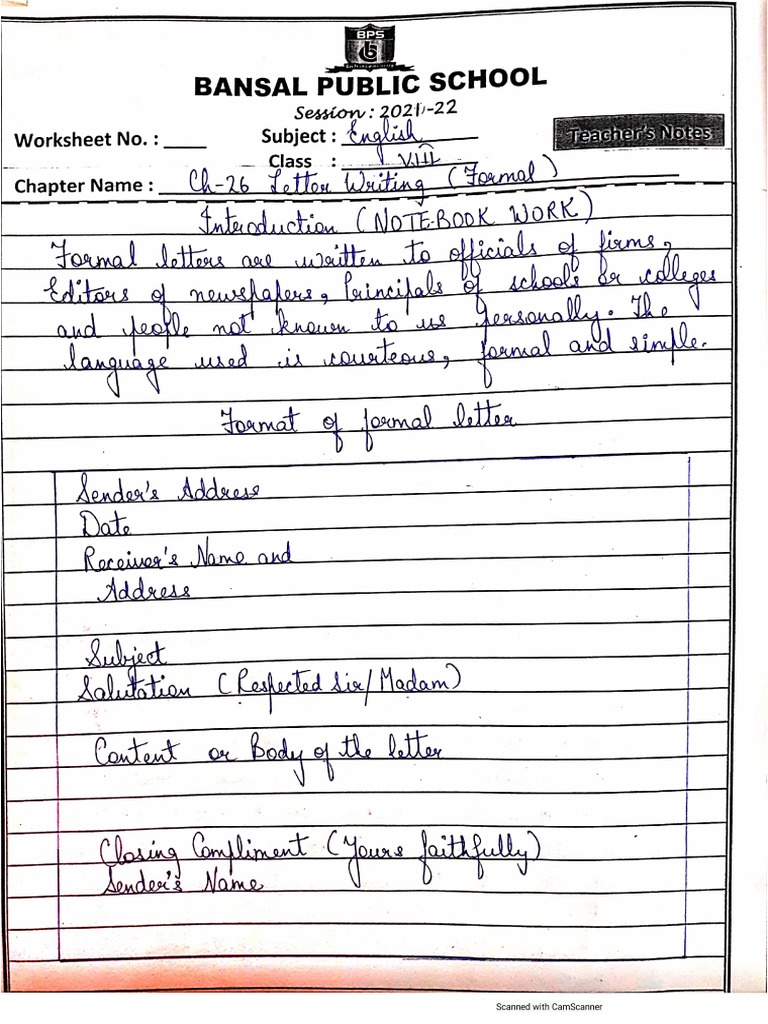 BPS
BANSAL PUBLIC SCHOOL
Session : 2021-22
Worksheet No. : ____ Subject : English Teacher's Notes
Class : VIII
Chapter Name : Ch-26 Letter Writing (Formal)
Introduction (NOTE-BOOK WORK)
Formal letters are written to officials of firms,
Editors of newspapers, Principals of schools or colleges
and people not known to us personally. The
language used is courteous, formal and simple.
Format of formal letter
Sender's Address
Date
Receiver's Name and
Address
Subject
Salutation (Respected Sir/Madam)
Content or Body of the letter
Closing Compliment (Yours faithfully)
Sender's Name
Scanned with CamScanner